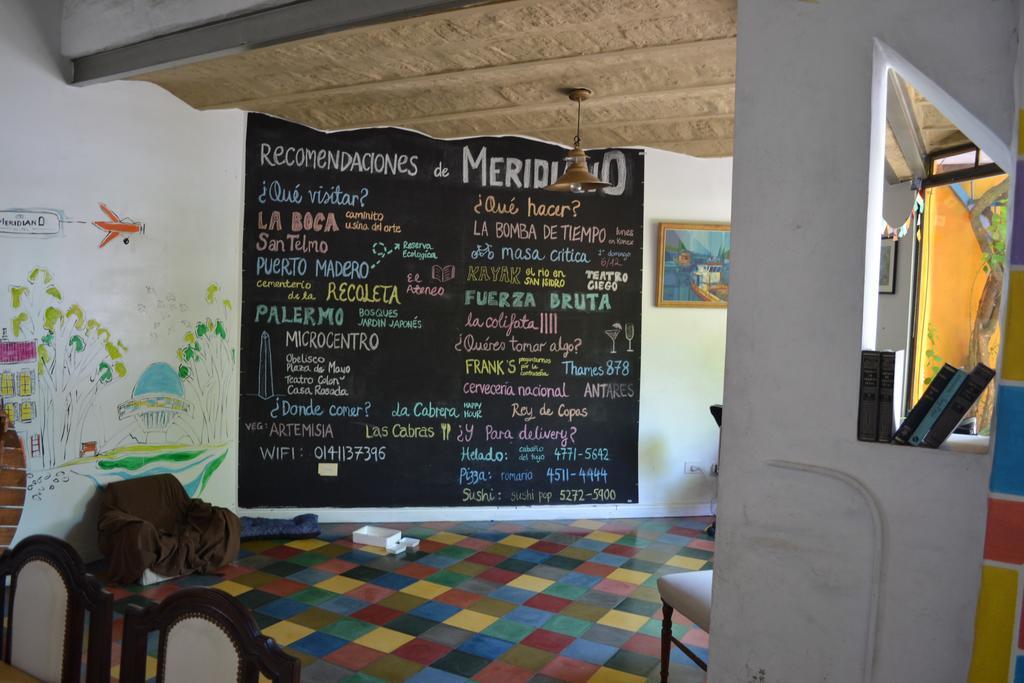 MERIDIANO
RECOMENDACIONES de MERIDIANO
¿Qué visitar?
LA BOCA caminito
usina del arte
San Telmo
PUERTO MADERO Reserva
Ecológica
cementerio
de la RECOLETA
El
Ateneo
PALERMO BOSQUES
JARDIN JAPONÉS
MICROCENTRO
Obelisco
Plaza de Mayo
Teatro Colon
Casa Rosada
¿Donde comer? La Cabrera HAPPY
HOUR
VEG: ARTEMISIA Las Cabras
WIFI: 0141137396
¿Qué hacer?
LA BOMBA DE TIEMPO lunes
en Konex
masa crítica 1° domingo
6/12
KAYAK el rio en
SAN ISIDRO
TEATRO
CIEGO
FUERZA BRUTA
la colifata
¿Quéres tomar algo?
FRANK'S preguntarnos
por la
contraseña
Thames 878
cervecería nacional ANTARES
Rey de Copas
¿Y Para delivery?
Helado: 4771-5642
Pizza: romario 4511-4444
Sushi: sushi pop 5272-5900